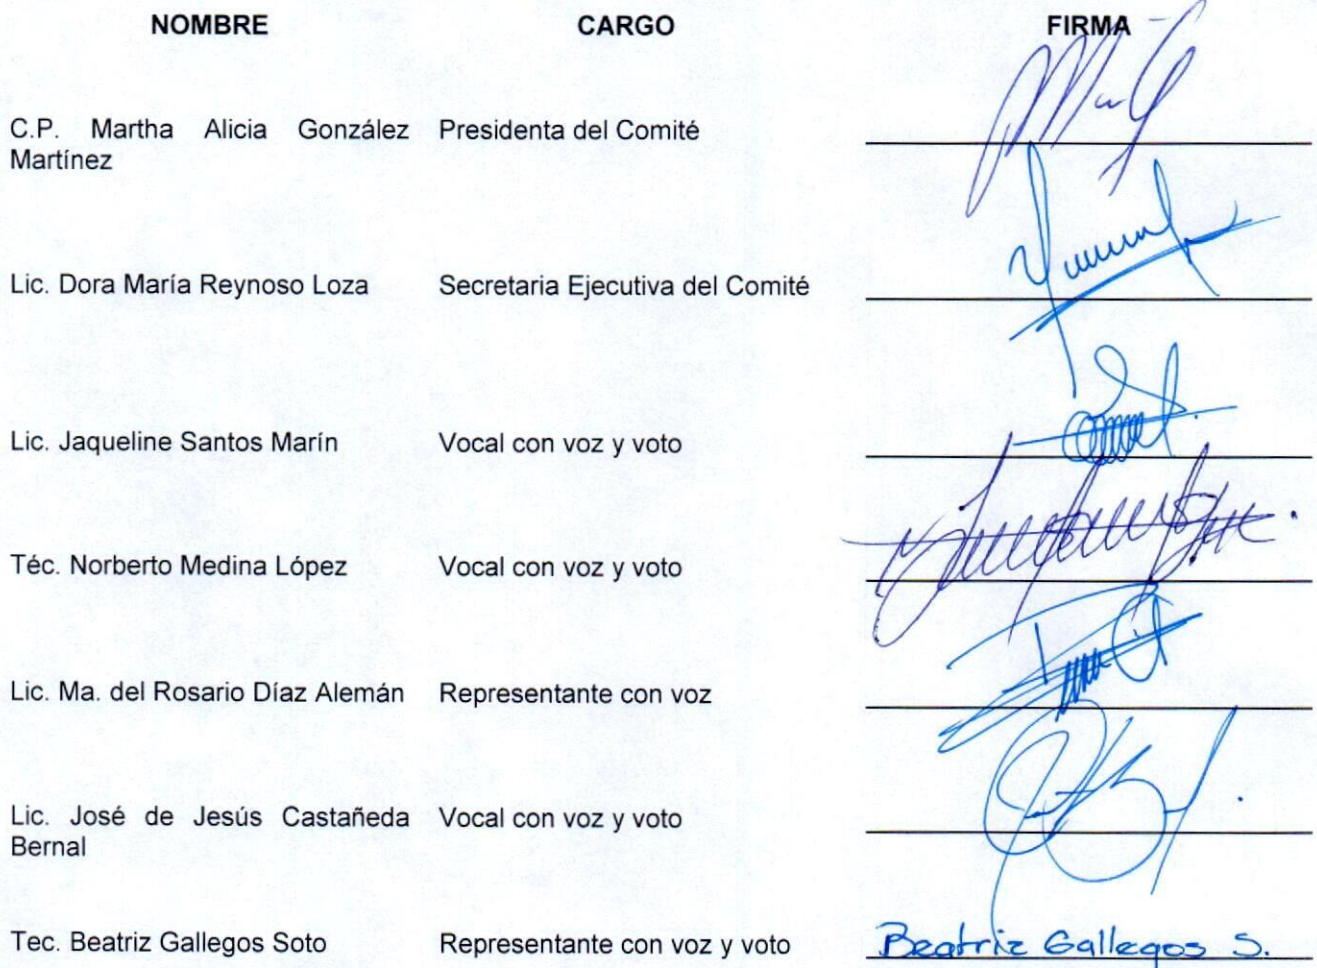 NOMBRE CARGO FIRMA
C.P. Martha Alicia González Presidenta del Comité
Martínez
Lic. Dora María Reynoso Loza Secretaria Ejecutiva del Comité
Lic. Jaqueline Santos Marín Vocal con voz y voto
Téc. Norberto Medina López Vocal con voz y voto
Lic. Ma. del Rosario Díaz Alemán Representante con voz
Lic. José de Jesús Castañeda Vocal con voz y voto
Bernal
Tec. Beatriz Gallegos Soto Representante con voz y voto Beatriz Gallegos S.